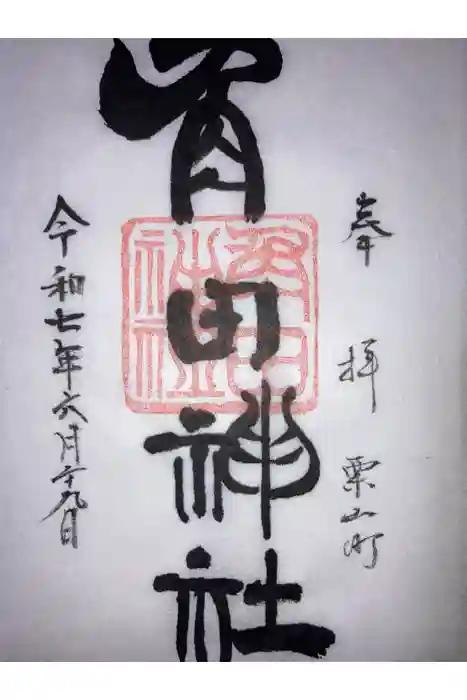 奉拝 栗山町
角田神社
令和七年六月二十九日